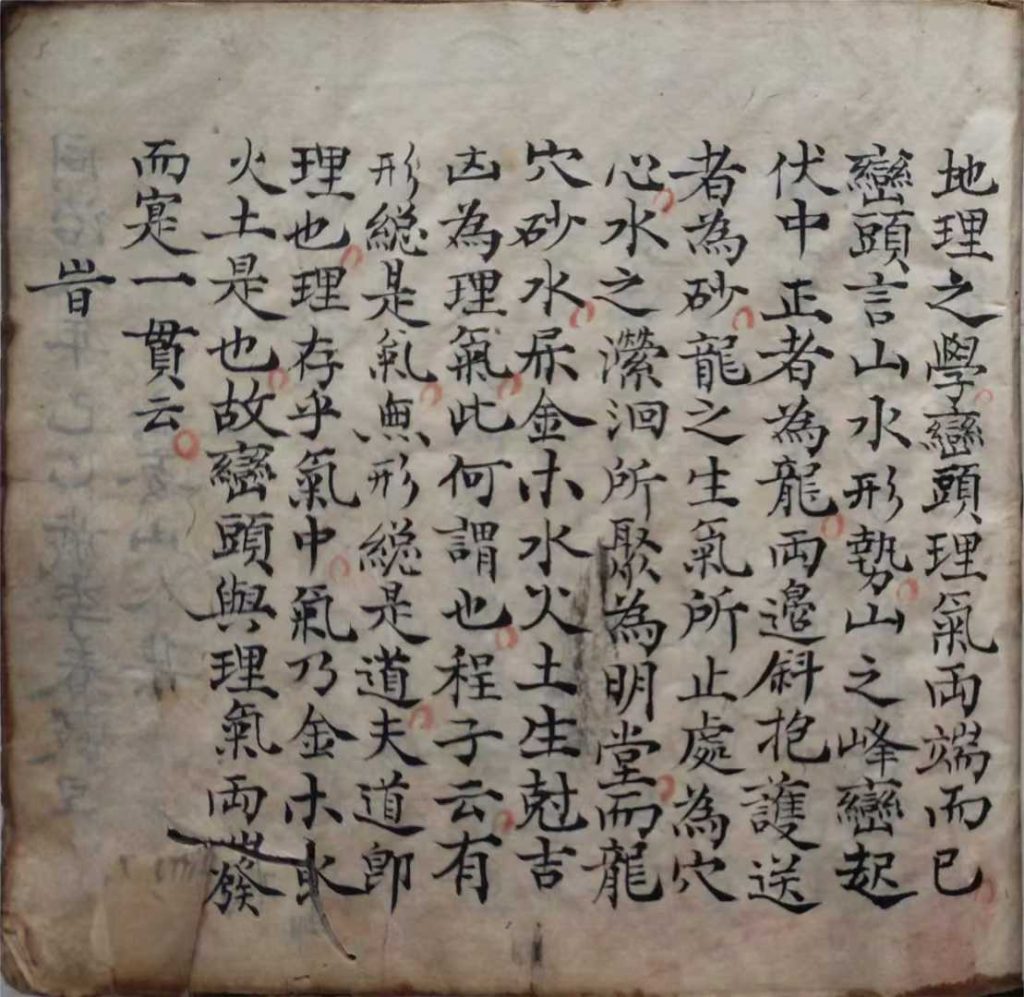 地理之學巒頭理氣両端而已
巒頭言山水形勢山之峰巒起
伏中正者為龍両邊斜抱護送
者為砂龍之生氣所止處為穴
心水之瀠洄所聚為明堂而龍
穴砂水屎金木水火土生尅吉
凶為理氣此何謂也程子云有
形緫是氣無形緫是道夫道即
理也理存乎氣中氣乃金木水
火土是也故巒頭與理氣両發
而寔一貫云
旹